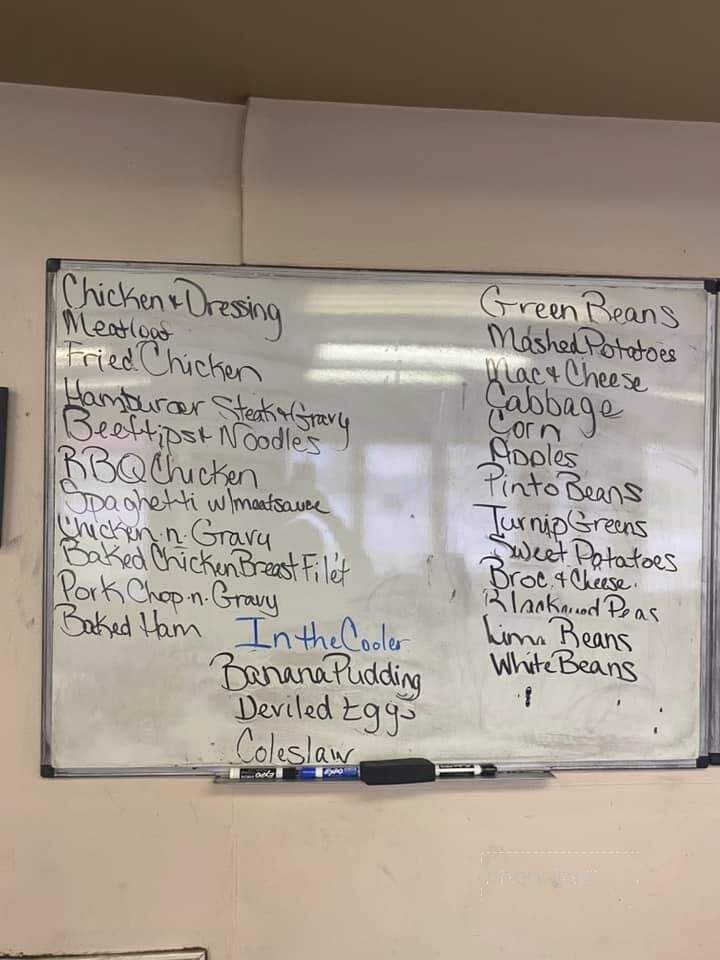 Chicken & Dressing
Meatloaf
Fried Chicken
Hamburger Steak & Gravy
Beeftips & Noodles
BBQ Chicken
Spaghetti w/meatsauce
Chicken.n.Gravy
Baked Chicken Breast Filet
Pork Chop.n.Gravy
Baked Ham
In the Cooler
Banana Pudding
Deviled Eggs
Coleslaw
Green Beans
Mashed Potatoes
Mac & Cheese
Cabbage
Corn
Apples
Pinto Beans
Turnip Greens
Sweet Potatoes
Broc. & Cheese.
Peas
Lima Beans
White Beans
EXPO
EXPO